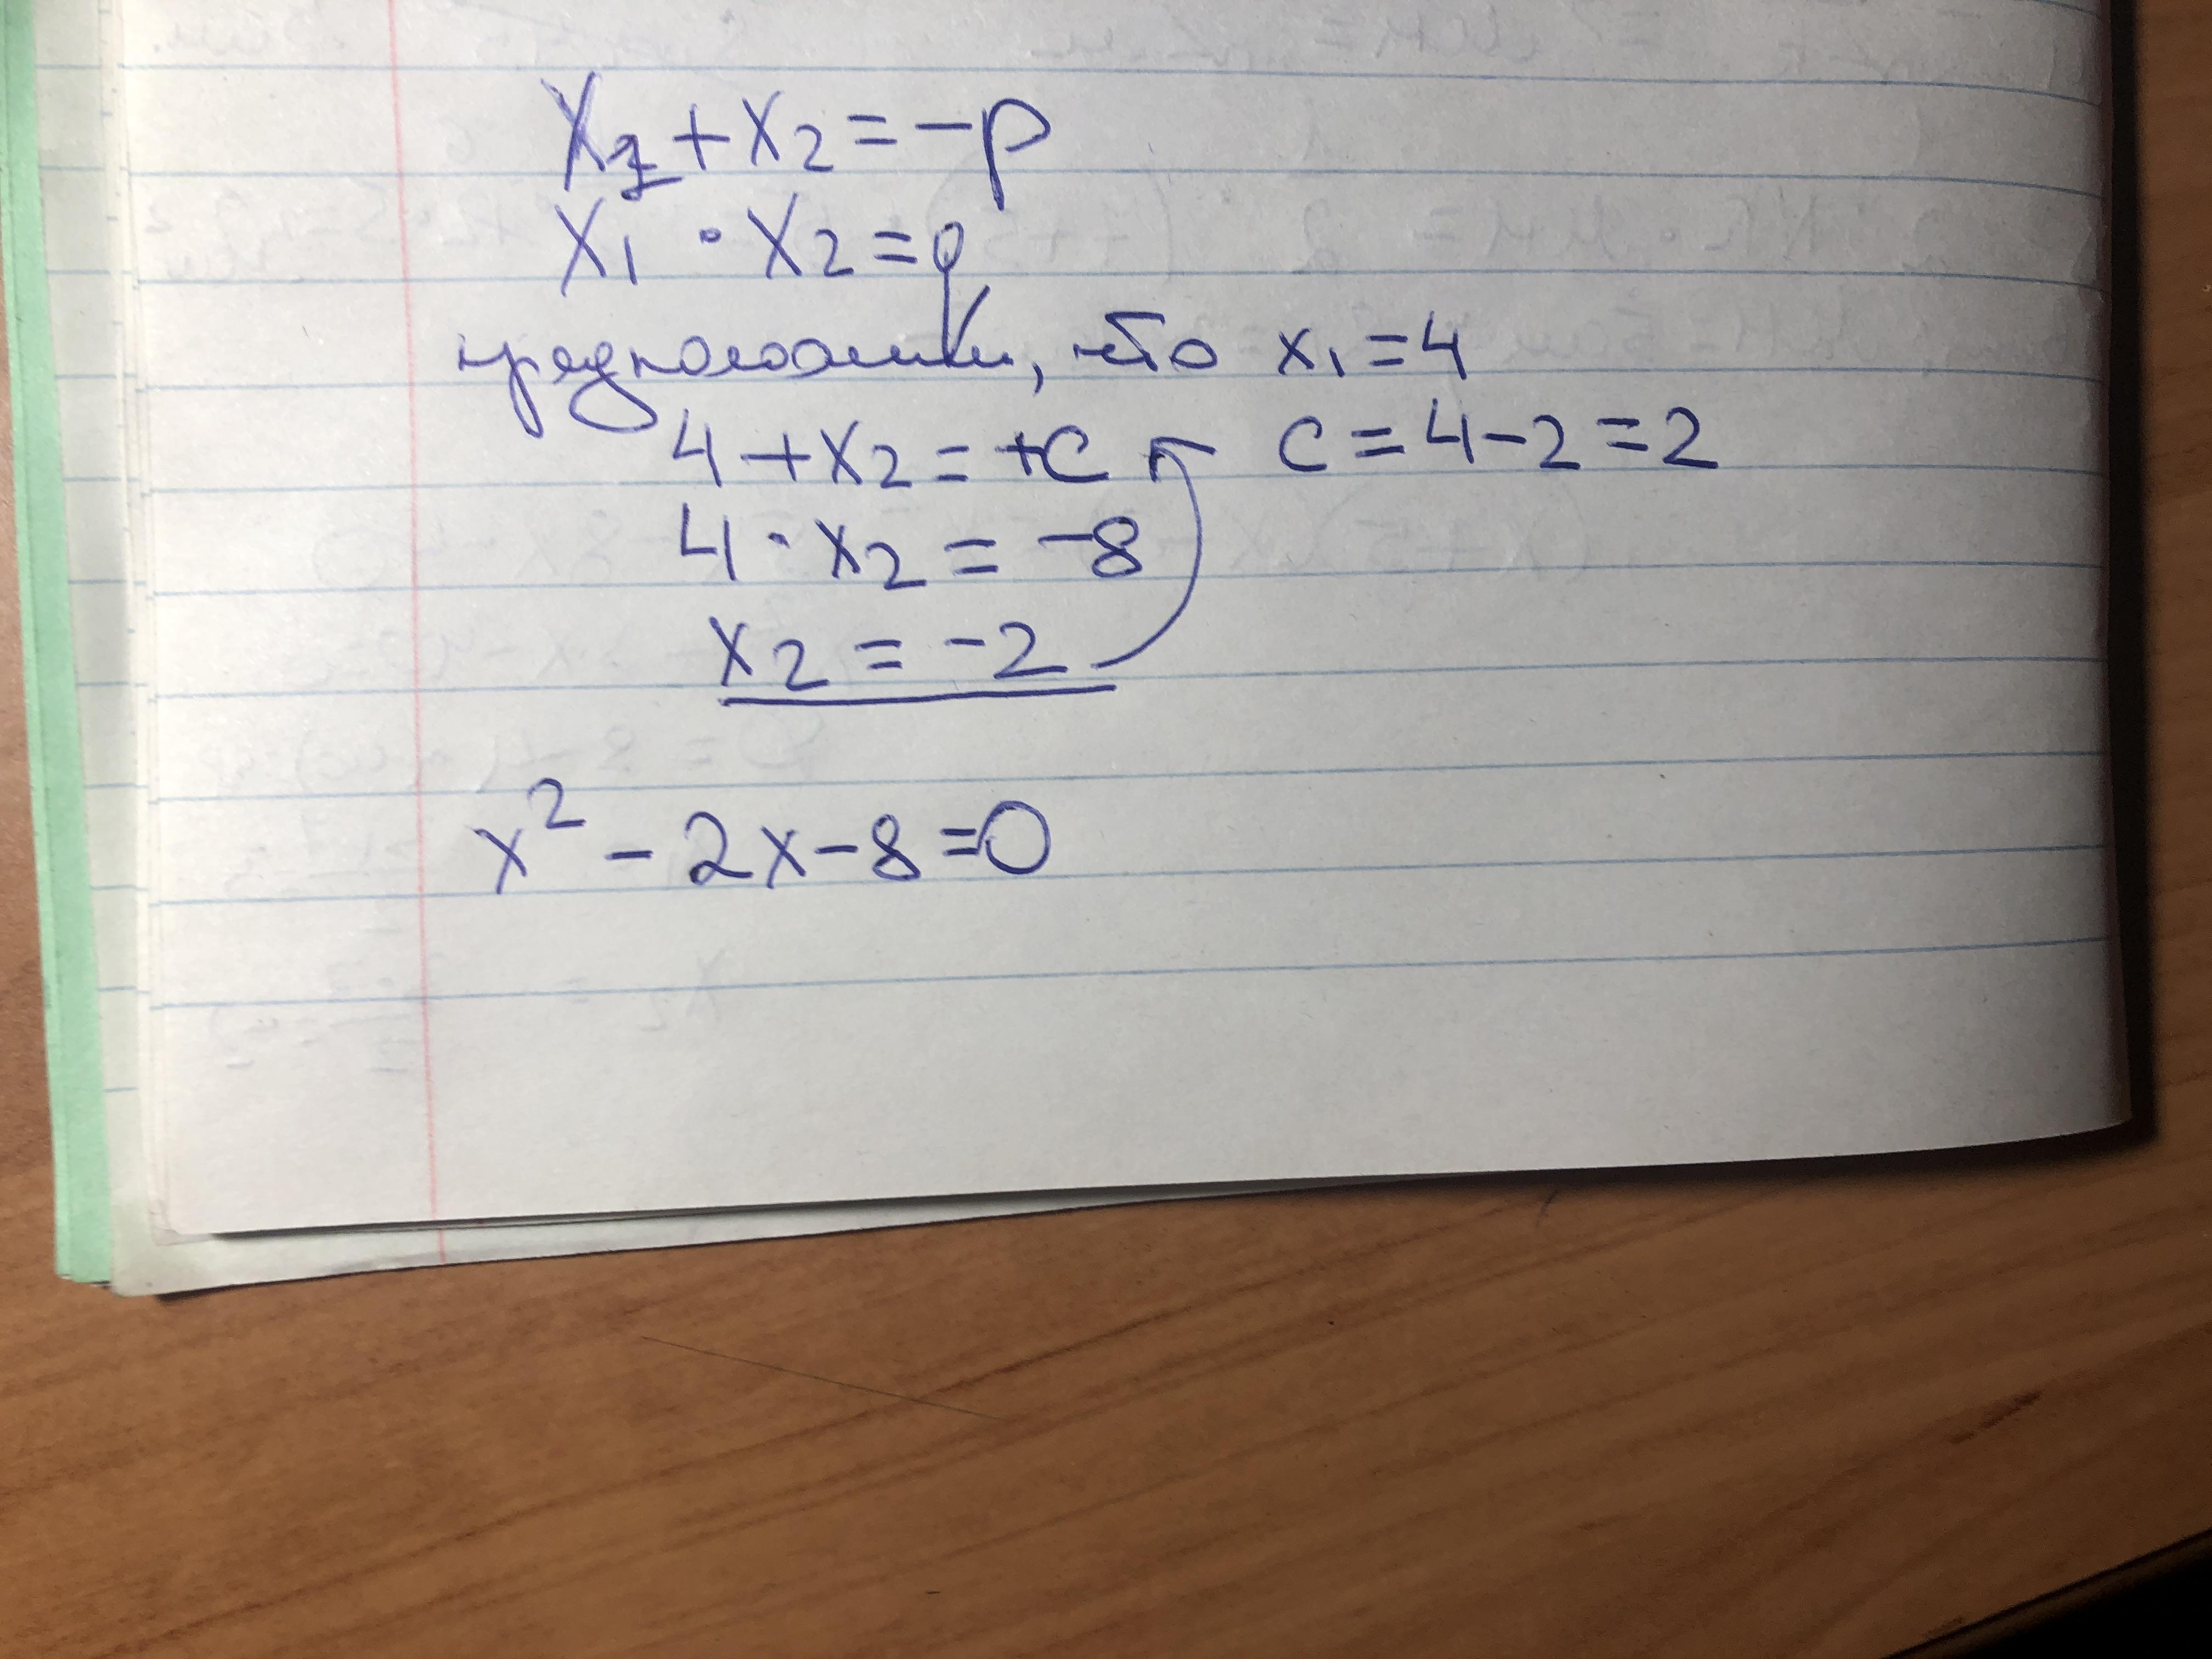 x₁ + x₂ = -p
x₁ · x₂ = q
предположим, что x₁ = 4
4 + x₂ = +c    c = 4 - 2 = 2
4 · x₂ = -8
x₂ = -2
x² - 2x - 8 = 0